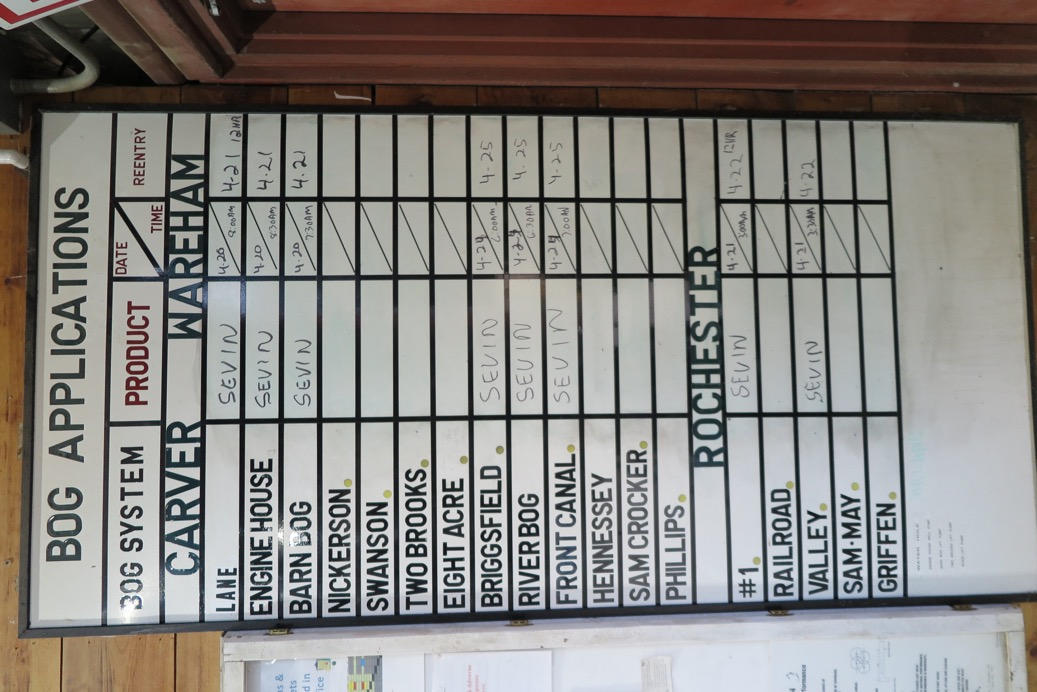 BOG APPLICATIONS
BOG SYSTEM PRODUCT DATE TIME REENTRY
CARVER WAREHAM
LANE SEVIN 4-20 8:00AM 4-21 12HR
ENGINE HOUSE SEVIN 4-20 8:30AM 4-21
BARN BOG SEVIN 4-20 7:30AM 4-21
NICKERSON
SWANSON
TWO BROOKS
EIGHT ACRE
BRIGGSFIELD SEVIN 4-24 6:00AM 4-25
RIVER BOG SEVIN 4-24 6:30AM 4-25
FRONT CANAL SEVIN 4-24 7:00AM 4-25
HENNESSEY
SAM CROCKER
PHILLIPS
ROCHESTER
#1 SEVIN 4-21 3:00AM 4-22 12HR
RAILROAD
VALLEY SEVIN 4-21 3:30AM 4-22
SAM-MAY
GRIFFEN